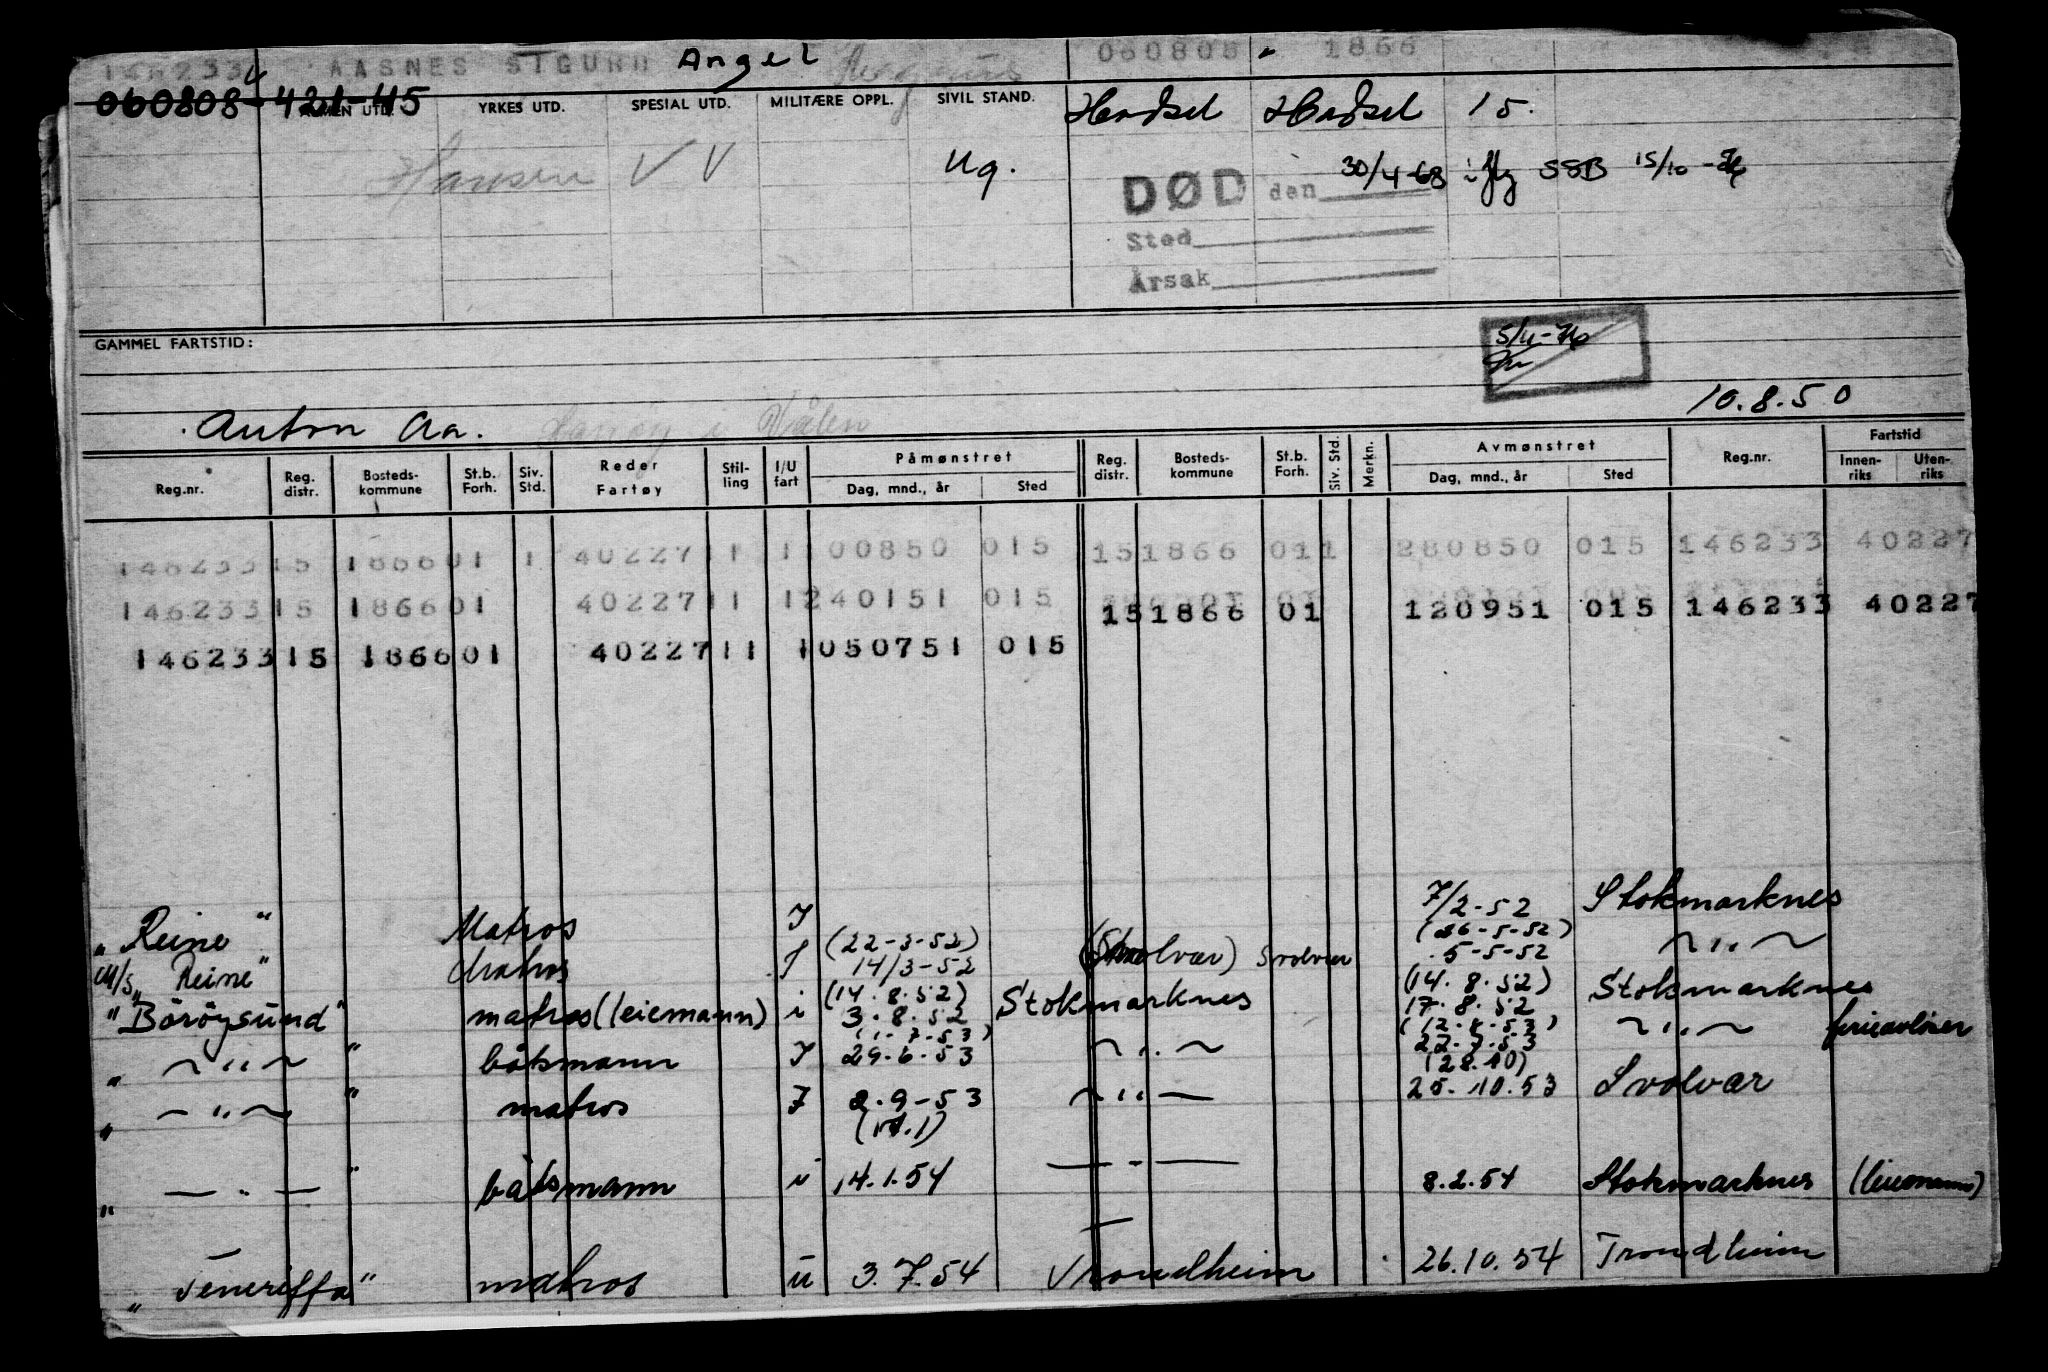 146233 AASNES SIGURD Angel Magnus 060808 1866
060808-42145
ALMEN UTD. YRKES UTD. SPESIAL UTD. MILITÆRE OPPL. SIVIL STAND. Hadsel Hadsel 15.
Hansen V V ug. DØD den 30/4-68 iflg SSB 15/10-76
Sted
Årsak
GAMMEL FARTSTID: 5/11-76
10.8.50
Anton Aa. i
Reg.nr. Reg. distr. Bosteds-kommune St.b. Forh. Siv. Std. Reder Fartøy Stil-ling I/U fart Påmønstret Dag, mnd., år Sted Reg. distr. Bosteds-kommune St.b. Forh. Siv. Std. Merkn. Avmønstret Dag, mnd., år Sted Reg.nr. Fartstid Innen-riks Uten-riks
146233 15 1866 01 1 40227 11 1 00850 015 15 1866 01 1 280850 015 146233 40227
146233 15 1866 01 40227 11 1 240151 015 15 1866 01 120951 015 146233 40227
146233 15 1866 01 40227 11 1 050751 015
"Reine" Matros I 7/2-52 Stokmarknes
M/S "Reine" Matros I (22-3-52) 14/3-52 (Svolvær) Svolvær (26-5-52) 5-5-52 ~"~
"Böröysund" matros (leiemann) i (14.8.52) 3.8.52 Stokmarknes (14.8.52) 17.8.52 Stokmarknes
" ~"~ " båtsmann I (1-7-53) 29.6.53 ~"~ (12.7.53) 22.7.53 ~"~ ferieavløser
" ~"~ " matros I 2.9-53 ~"~ (28.10) 25.10.53 Svolvær
" — " — " båtsmann i (14.1) 14.1.54 — " — 8.2.54 Stokmarknes (leiemann)
"Teneriffa" matros u 3.7.54 Trondheim 26.10.54 Trondheim